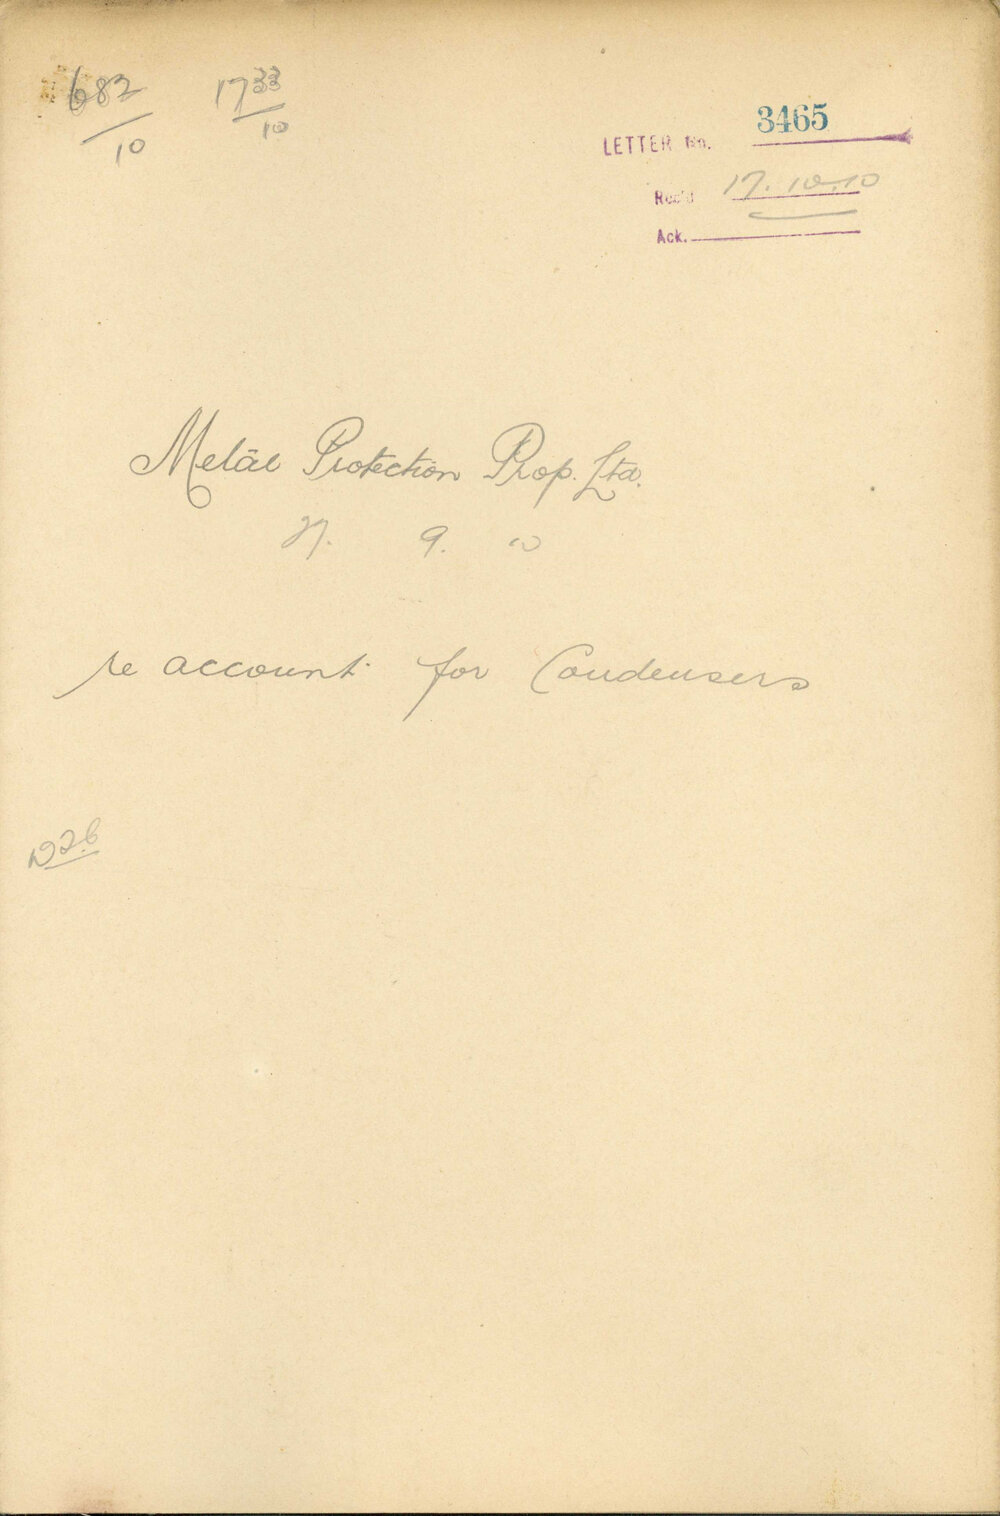 682/10 1733/10
LETTER No. 3465
Rec'd 17.10.10
Ack.
Metal Protection Prop. Ltd.
27. 9. 10
re account for Condensers